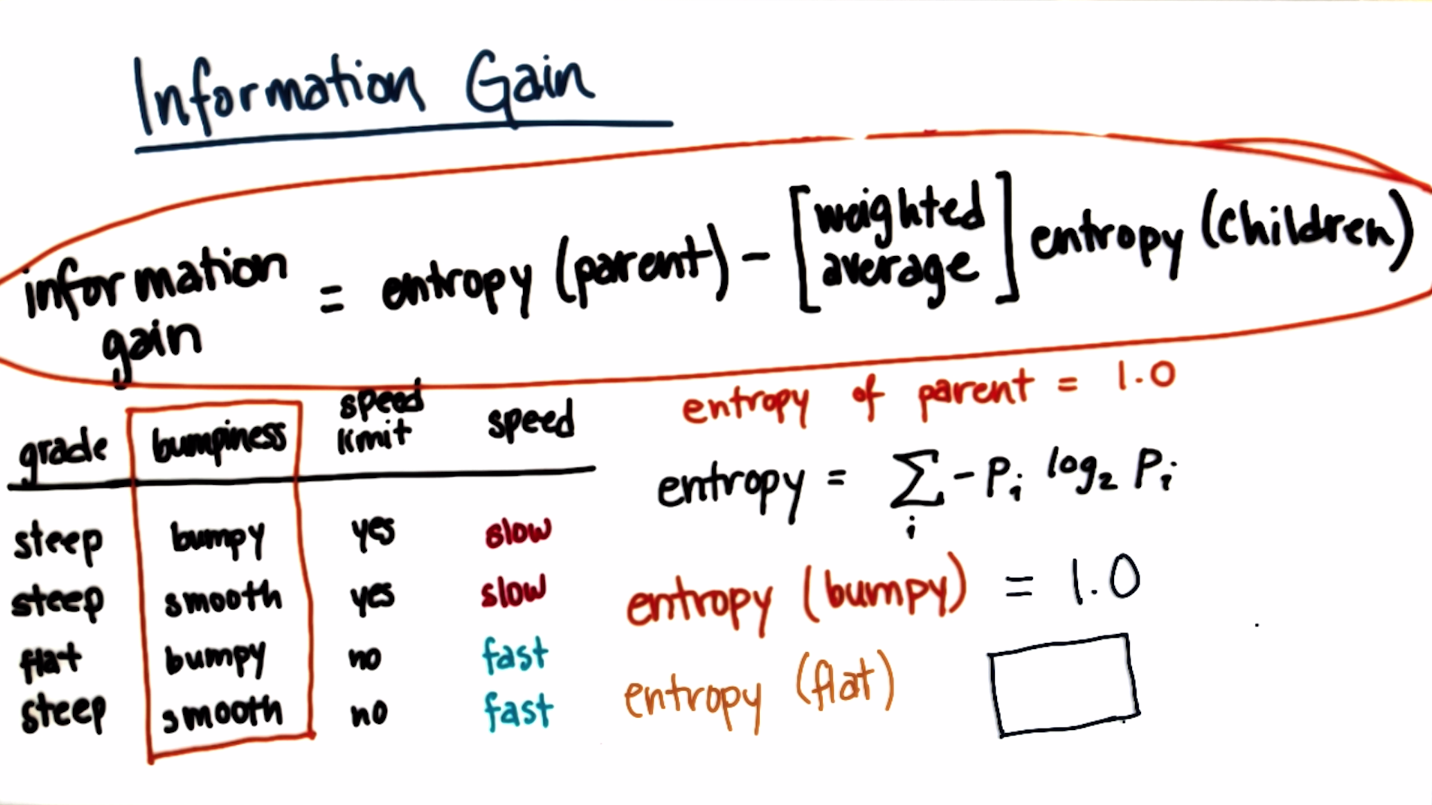 Information Gain
information gain = entropy (parent) - [weighted average] entropy (children)
grade bumpiness speed limit speed
steep bumpy yes slow
steep smooth yes slow
flat bumpy no fast
steep smooth no fast
entropy of parent = 1.0
entropy = ∑ i - Pi log2 Pi
entropy (bumpy) = 1.0
entropy (flat)